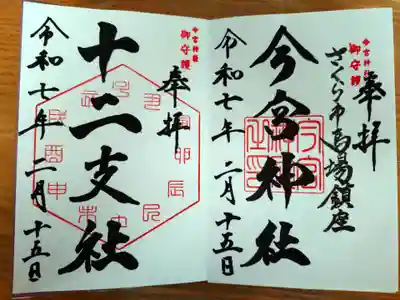 今宮神社
御守護
奉拝
さくら市馬場鎮座
今宮神社
令和七年二月十五日
今宮神社
御守護
奉拝
十二支社
寅卯辰巳
未申酉戌
令和七年二月十五日